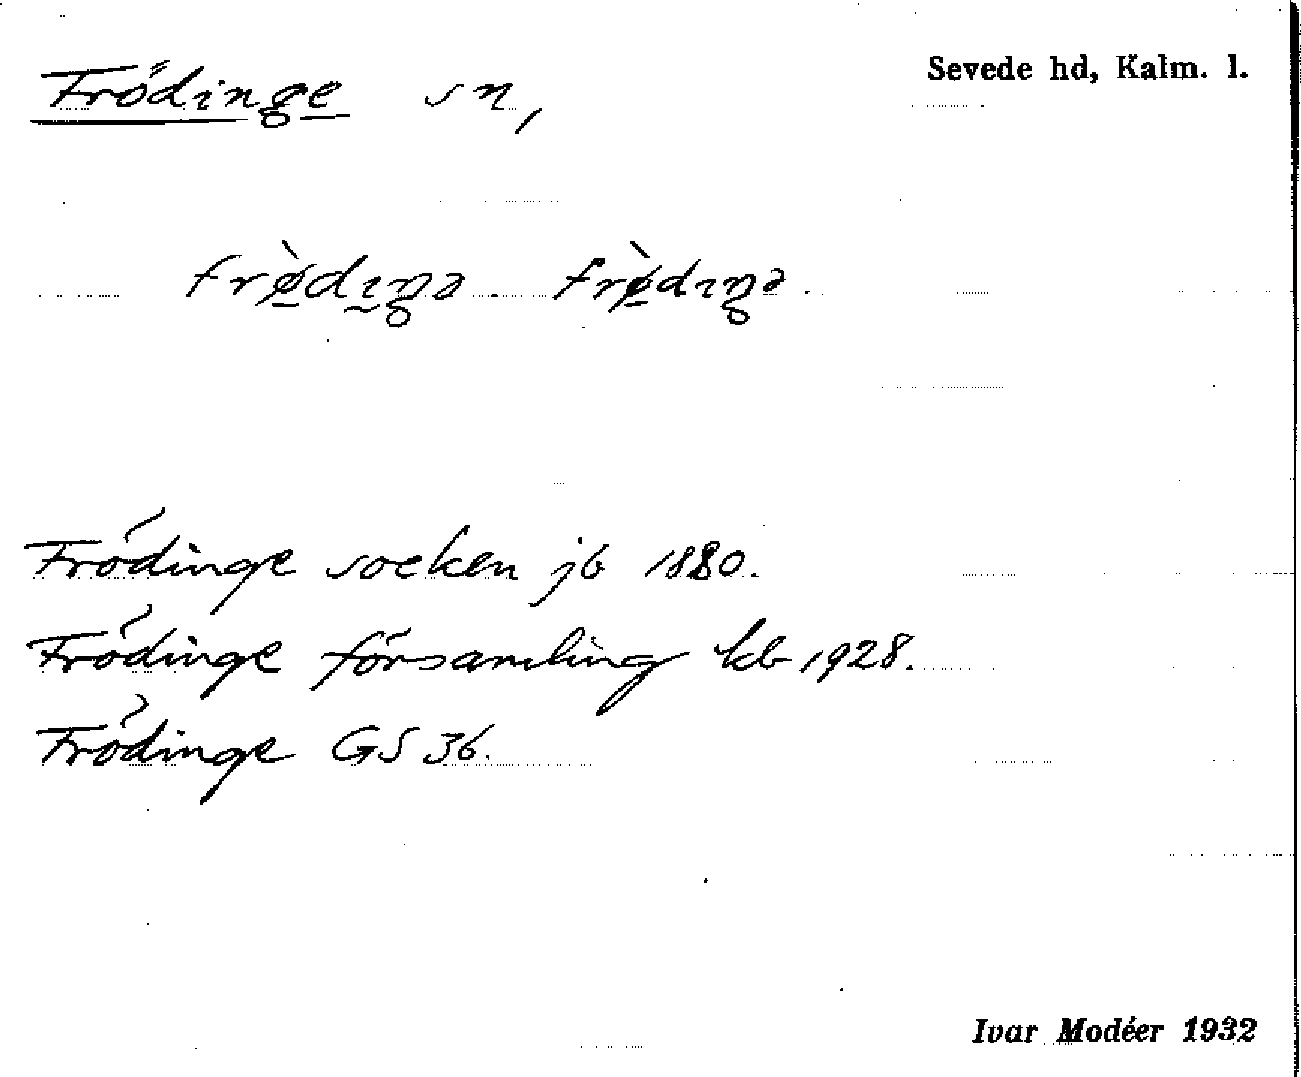 Frödinge sn,
Sevede hd, Kalm. l.
frø̀dıŋə. frø̀dıŋə.
Frödinge socken jb 1880.
Frödinge församling kb 1928.
Frödinge GS 36.
Ivar Modéer 1932